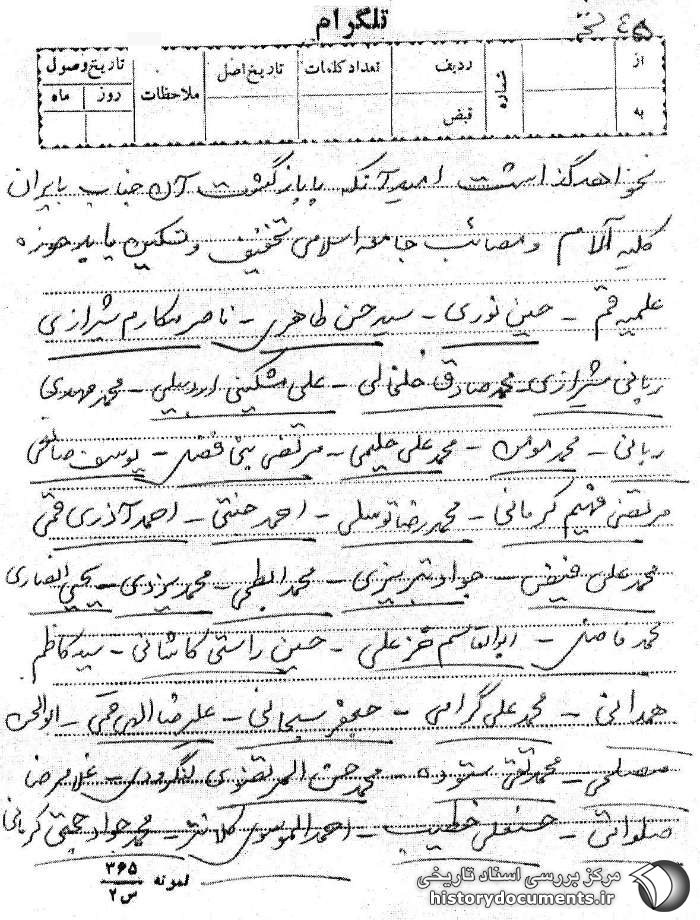 تلگرام
از
به
شماره
ردیف
قبض
تعداد کلمات
تاریخ اصل
ملاحظات
تاریخ وصول
روز
ماه
نخواهد گذاشت امید آنکه با بازگشت آن جناب بایران
کلیه آلام و مصائب جامعه اسلامی تخفیف و تسکین یابد حوزه
علمیه قم - حسین نوری - سید حسن طاهری - ناصر مکارم شیرازی
ربانی شیرازی - محمد صادق خلخالی - علی مشکینی اردبیلی - محمد مهدی
ربانی - محمد مومن - محمد علی حلیمی - مرتضی بنی فضل - یوسف صانعی
مرتضی فهیم کرمانی - محمد رضا توسلی - احمد جنتی - احمد آذری قمی
محمد علی فیض - جواد تبریزی - محمد ابطحی - محمد یزدی - یحیی انصاری
محمد فاضل - ابوالقاسم خزعلی - حسین راستی کاشانی - سید کاظم
همدانی - محمد علی گرامی - جعفر سبحانی - علیرضا الهی قمی - ابوالحسن
مصلحی - محمد تقی ستوده - محمد حسن المرتضوی لنگرودی - غلامرضا
صلواتی - حسنعلی خطیب - احمد الموسوی کلانتر - محمد جواد حجتی کرمانی
نمونه ۳۶۵ / س۲
مرکز بررسی اسناد تاریخی
historydocuments.ir